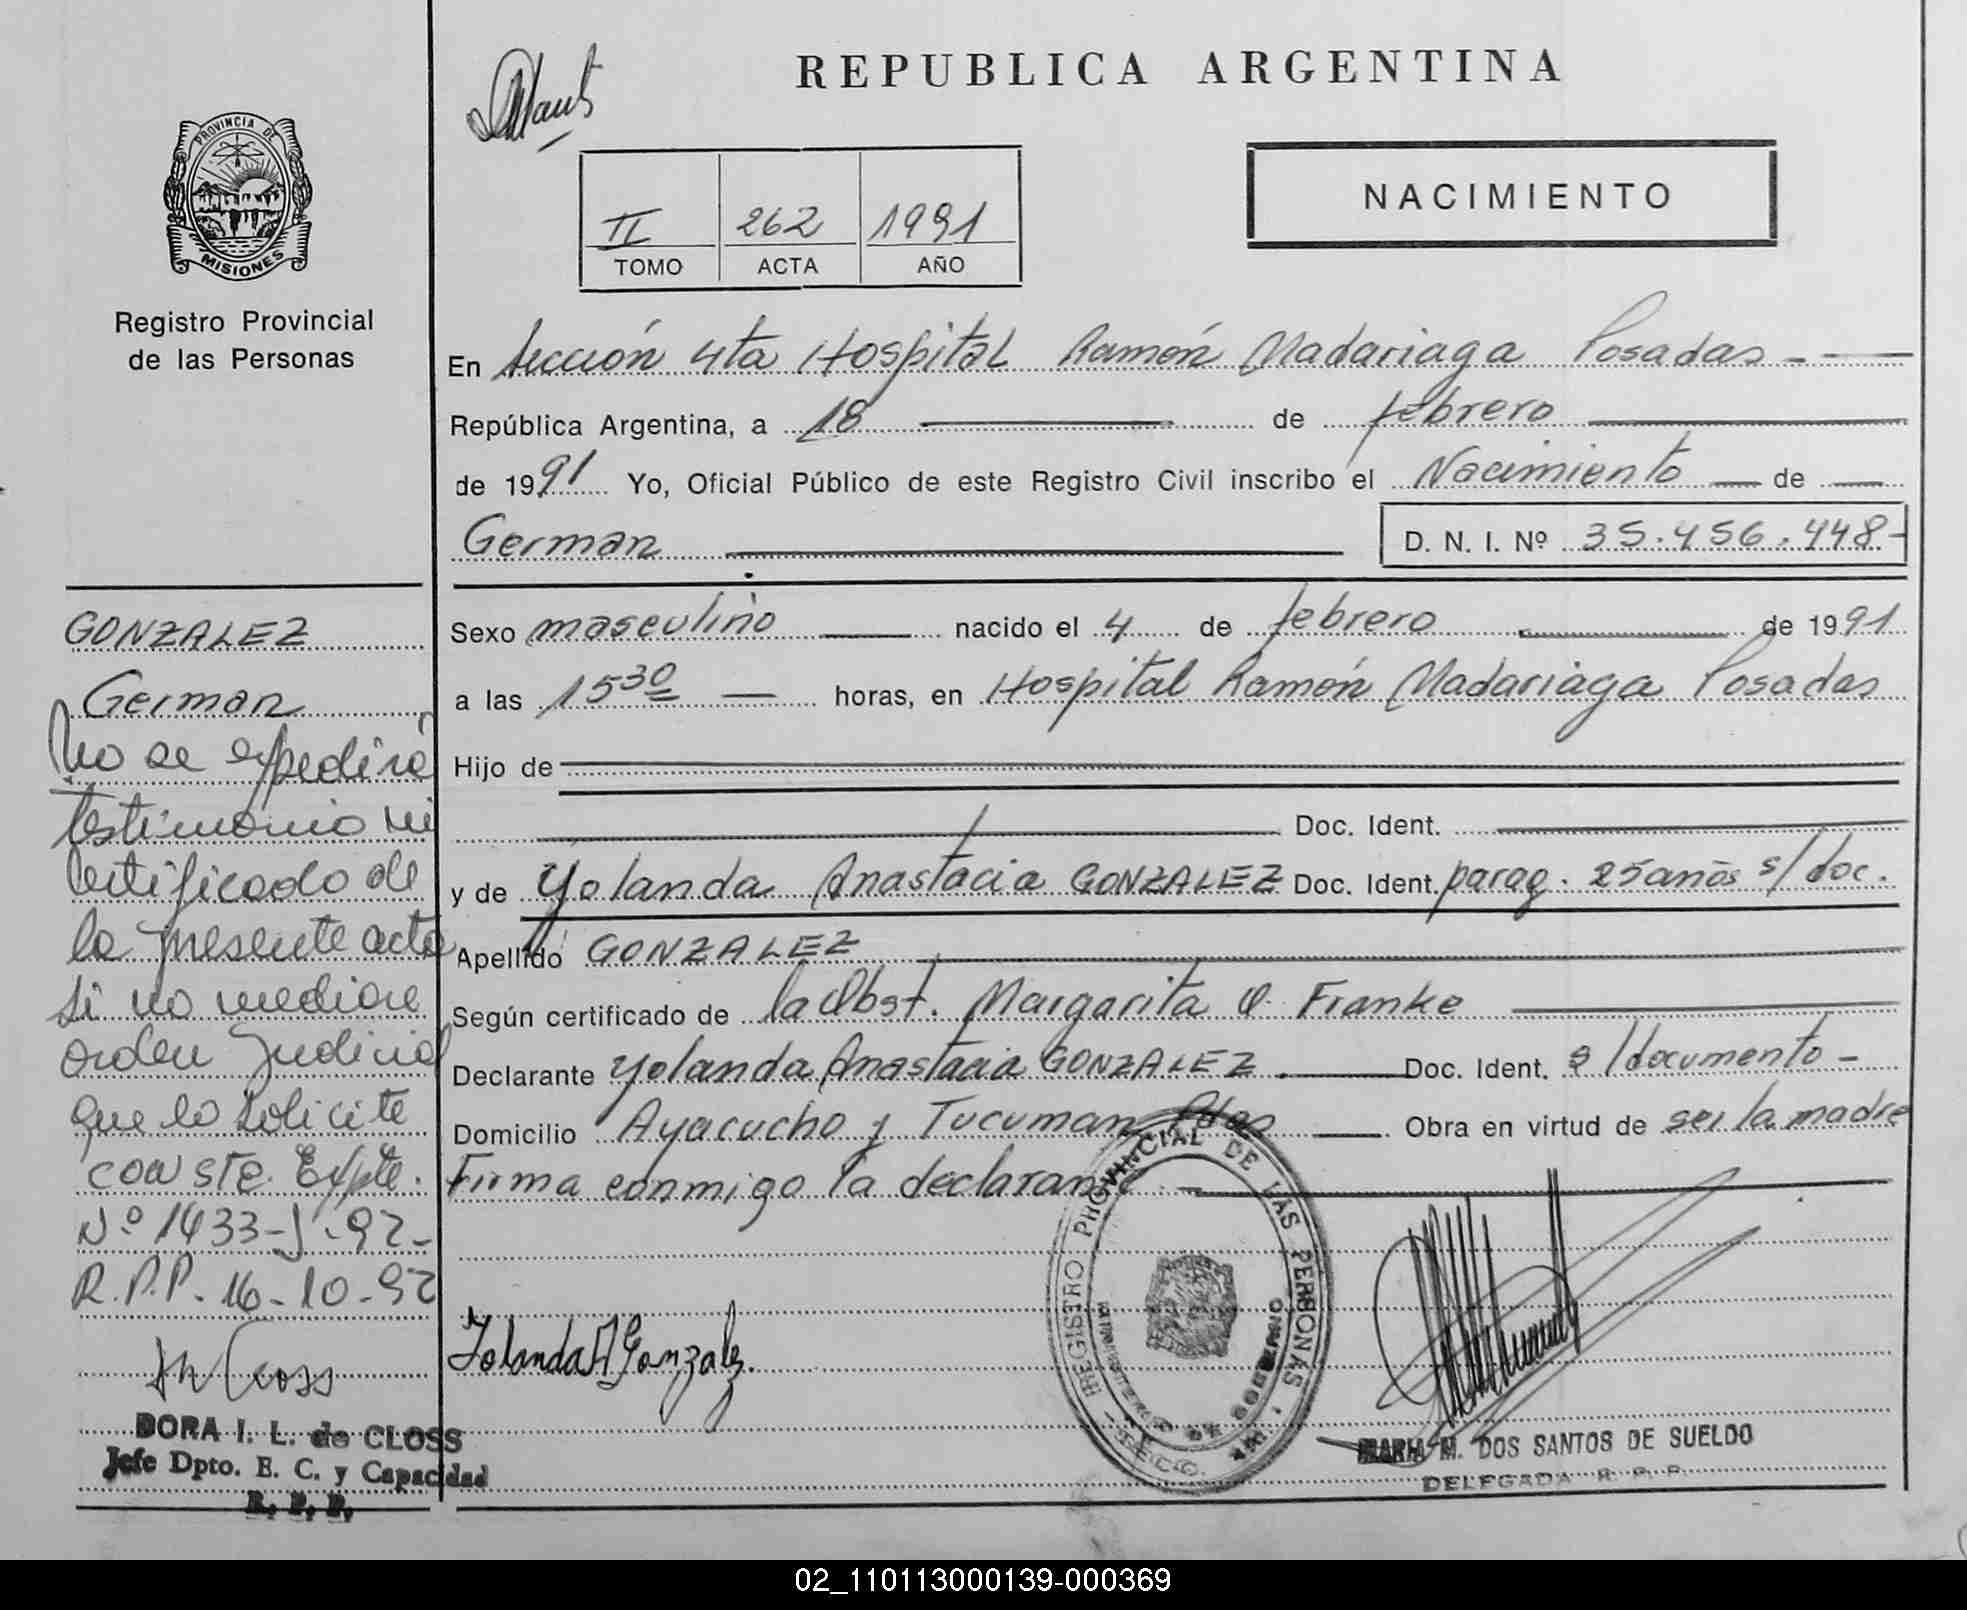 REPUBLICA ARGENTINA
NACIMIENTO
II 262 1991
TOMO ACTA AÑO
PROVINCIA DE
MISIONES
Registro Provincial
de las Personas
En Sección 4ta Hospital Ramón Madariaga Posadas
República Argentina, a 18 de febrero
de 1991 Yo, Oficial Público de este Registro Civil inscribo el Nacimiento de
German D. N. I. Nº 35.456.448-
Sexo masculino nacido el 4 de febrero de 1991
a las 15 30 horas, en Hospital Ramón Madariaga Posadas
Hijo de
Doc. Ident.
y de Yolanda Anastacia GONZALEZ Doc. Ident. parag. 25 años s/doc.
Apellido GONZALEZ
Según certificado de la Obst. Margarita O. Franke
Declarante Yolanda Anastacia GONZALEZ. Doc. Ident. s/documento-
Domicilio Ayacucho y Tucuman Pdas Obra en virtud de ser la madre
Firma conmigo la declarante.
Yolanda A Gonzalez.
REGISTRO PROVINCIAL DE LAS PERSONAS
MARIA M. DOS SANTOS DE SUELDO
DELEGADA R. P. P.
GONZALEZ
German
No se expedirá
testimonio ni
certificado de
la presente acta
si no mediare
orden Judicial
que lo solicite
conste. Expte.
Nº 1433-J-92-
R.P.P. 16-10-92
DORA I. L. de CLOSS
Jefe Dpto. E. C. y Capacidad
R. P. P.
02_110113000139-000369